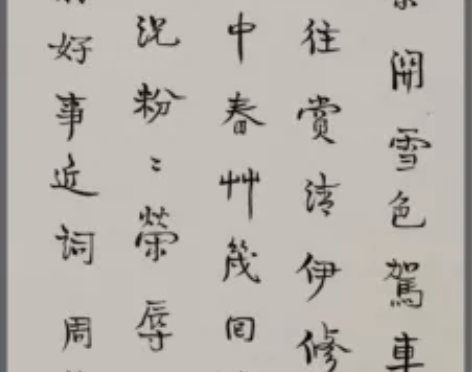 開雪色駕車
往賞清伊修
中春艸幾回
況粉〻榮辱
好事近詞周